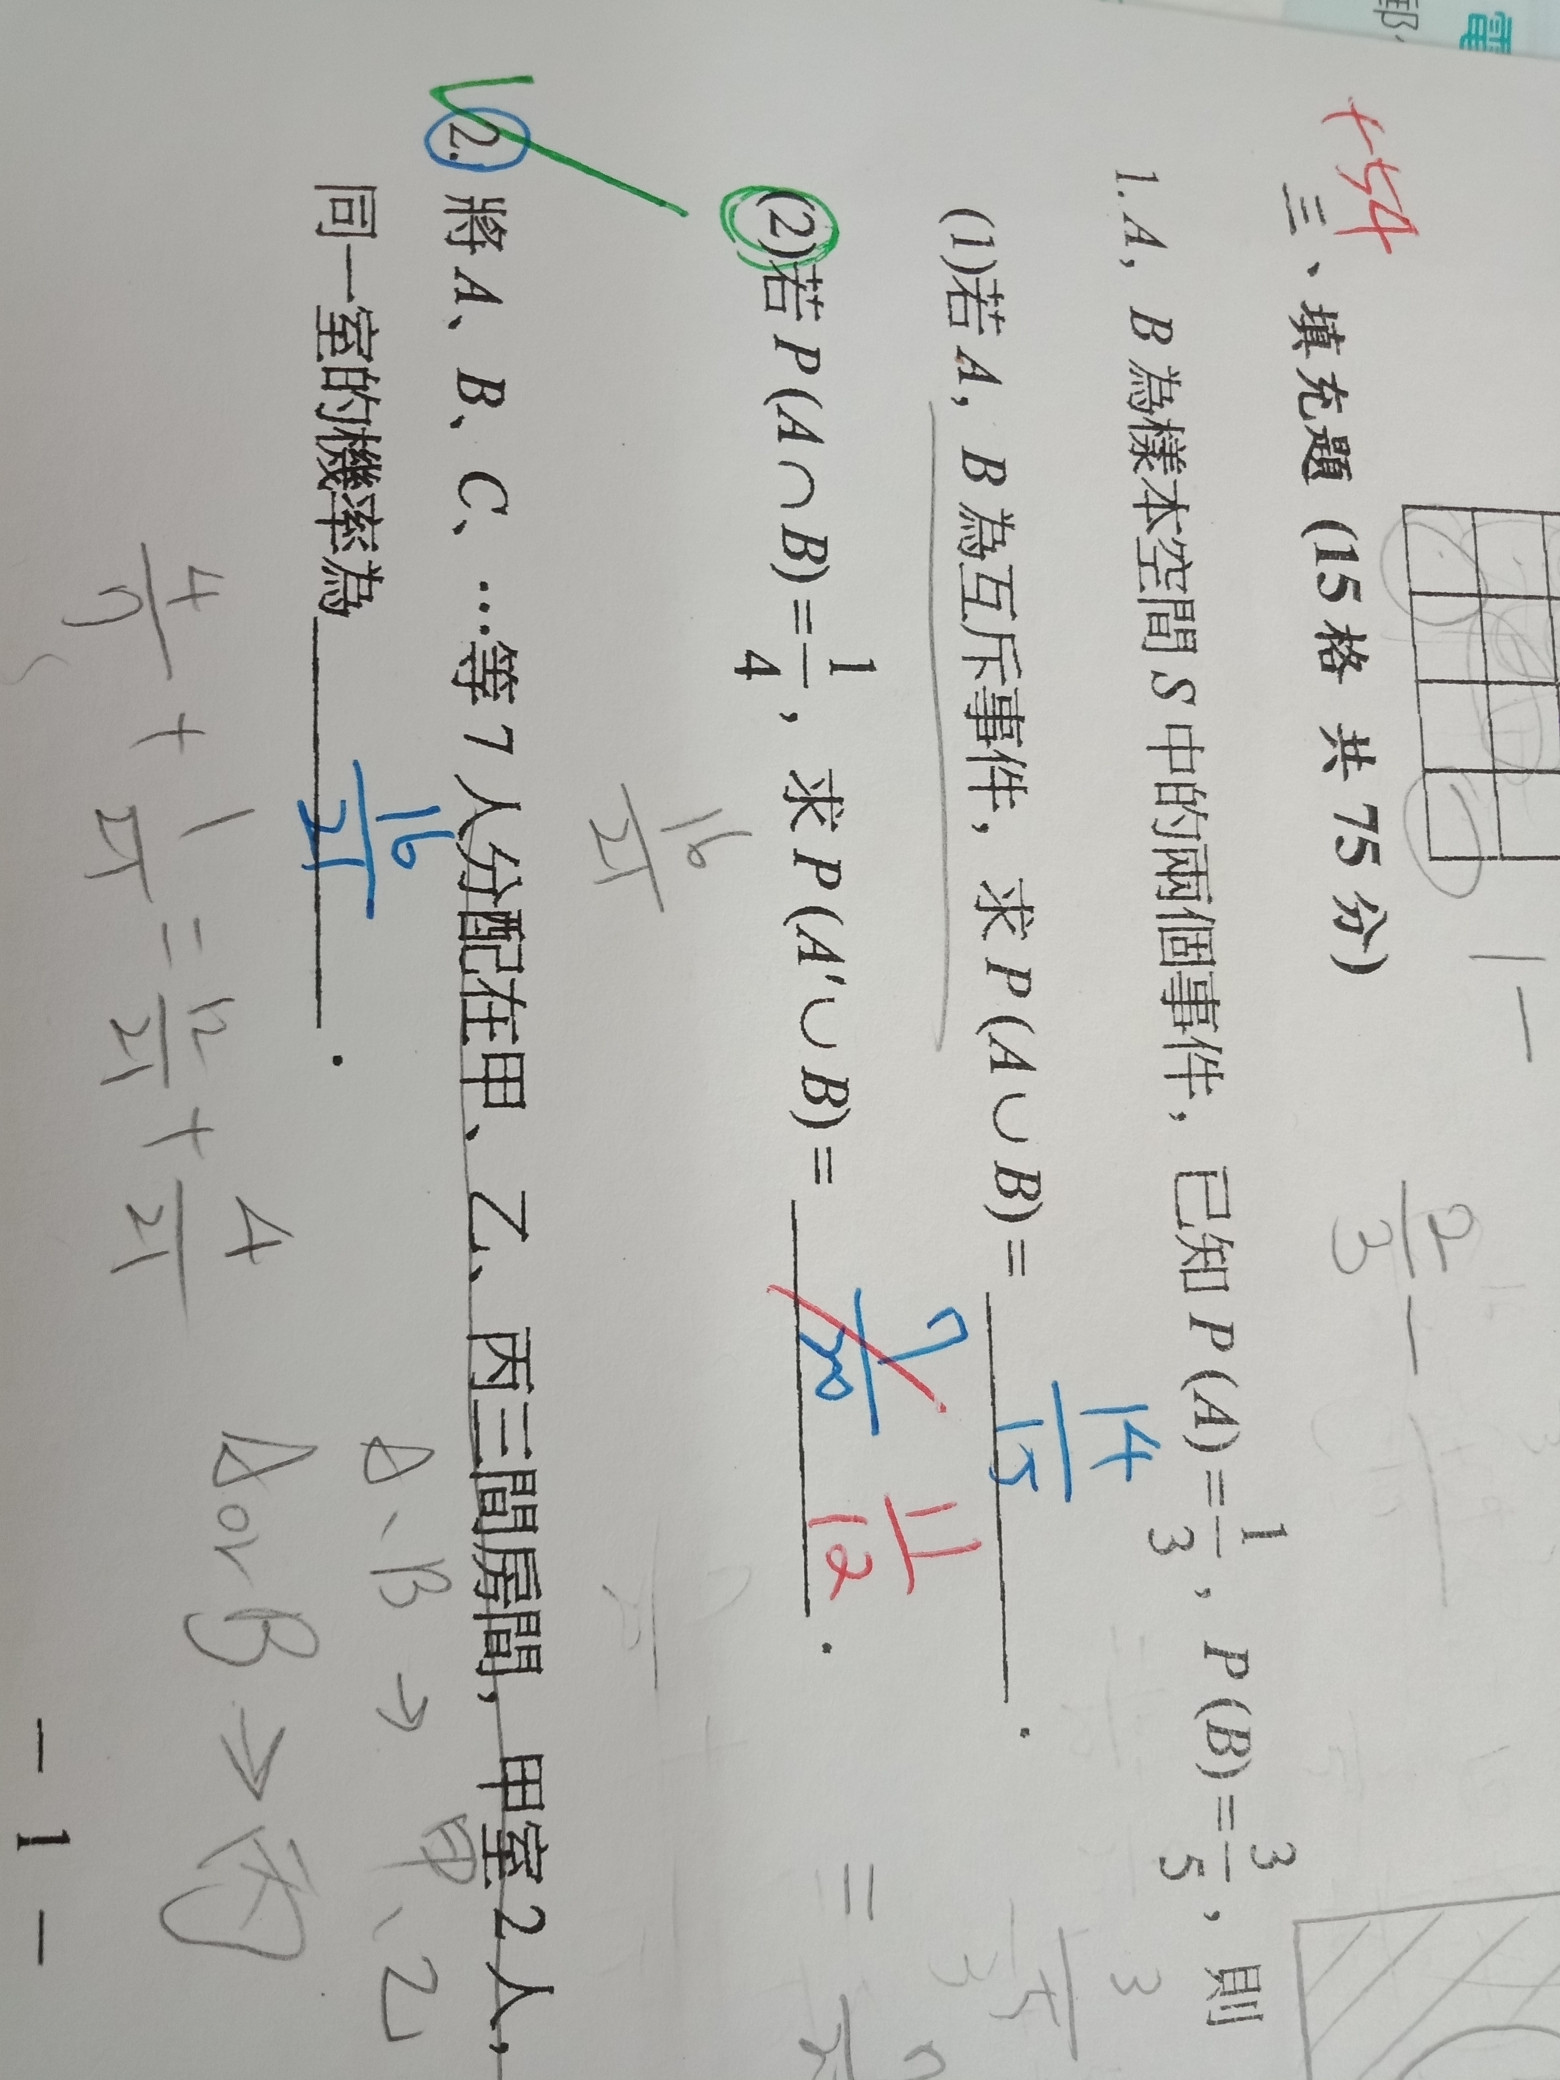 電
+54
三、填充題 (15格 共 75 分)
1. A, B 為樣本空間 S 中的兩個事件, 已知 P(A)=1/3, P(B)=3/5, 則
(1)若 A, B 為互斥事件, 求 P(A∪B)= 14/15 .
(2)若 P(A∩B)=1/4, 求 P(A′∪B)= 7/20 11/12 .
16/21
2. 將 A、B、C、…等 7 人分配在甲、乙、丙三間房間, 甲室 2 人,
同一室的機率為 16/21 .
A、B → 甲、乙
A or B → 丙
4/7 + 1/21 = 12/21 + 4/21
2/3 −
3/5
− 1 −